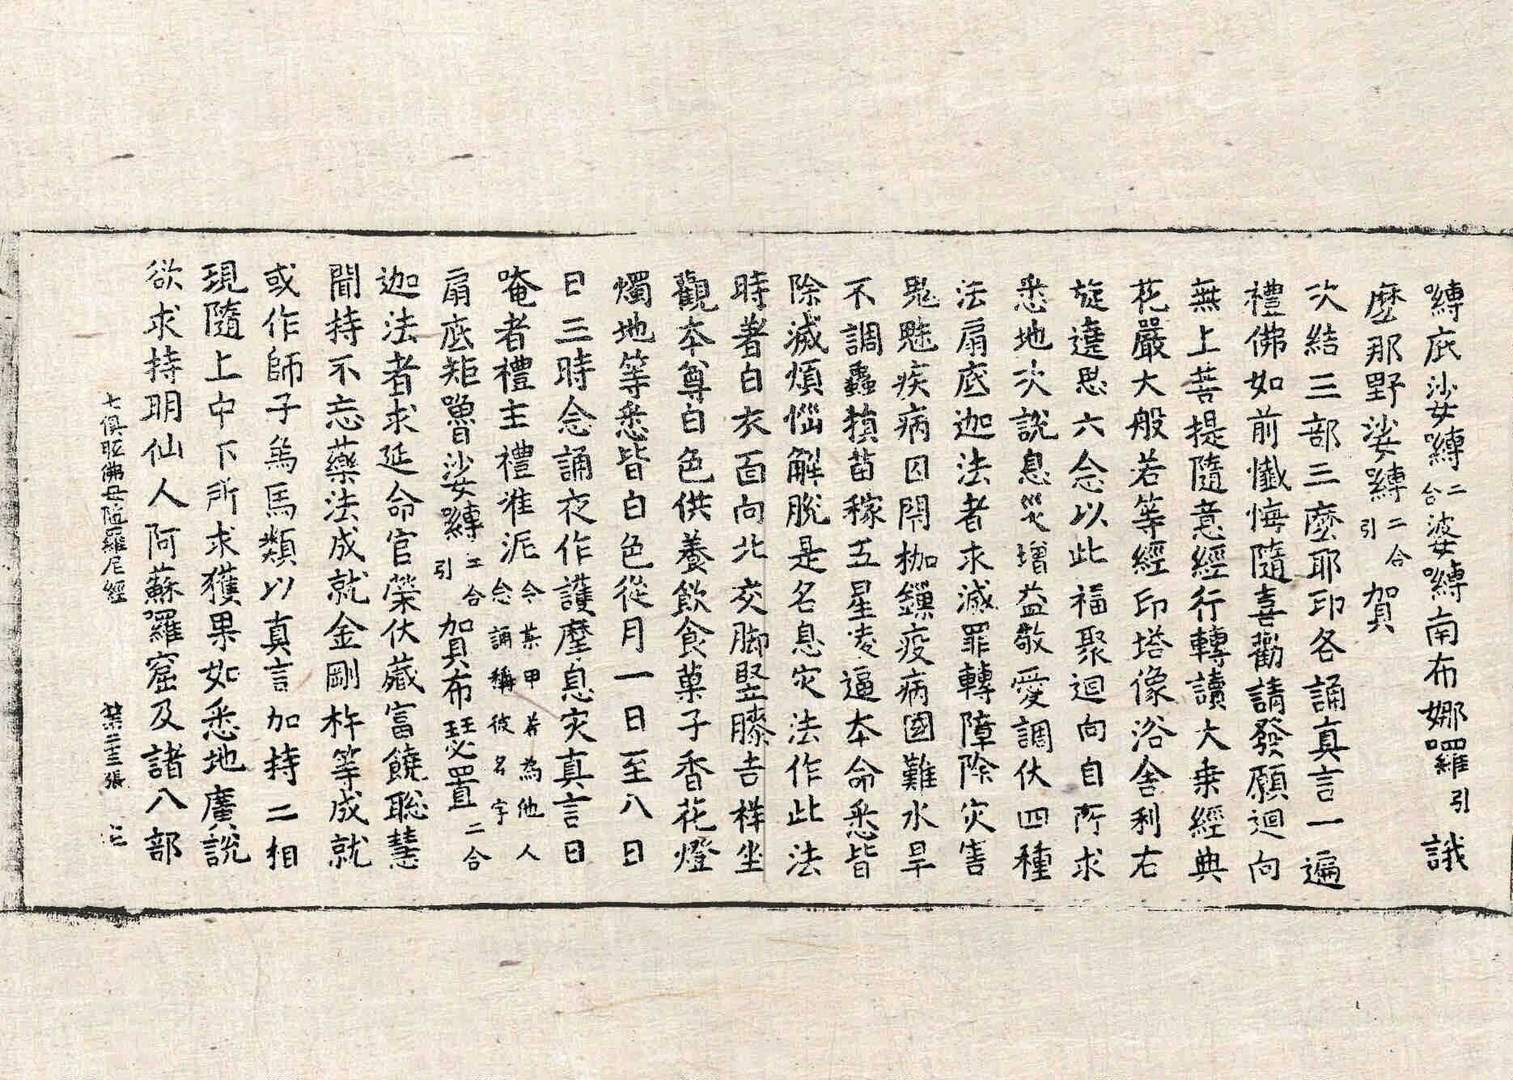 嚩庇沙娑嚩二合波娑嚩南布娜羅引誐
麼那野娑嚩二合引賀
次結三部三麼耶印各誦真言一遍
禮佛如前懺悔隨喜勸請發願迴向
無上菩提隨意經行轉讀大乗經典
花嚴大般若等經印塔像浴舍利右
旋遶思六念以此福聚迴向自所求
悉地次說息災增益敬愛調伏四種
法扇底迦法者求滅罪轉障除灾害
鬼魅疾病囚閇枷鏁疫病國難水旱
不調蟲損苗稼五星凌逼本命悉皆
除滅煩惱解脫是名息灾法作此法
時著白衣面向北交脚竪膝吉祥坐
觀本尊白色供養飲食菓子香花燈
燭地等悉皆白色從月一日至八日
日三時念誦夜作護摩息灾真言曰
唵者禮主禮准泥念誦稱彼名字令某甲若為他人
扇底矩嚕娑嚩二合引賀布瑟置二合
迦法者求延命官榮伏藏富饒聡慧
聞持不忘藥法成就金剛杵等成就
或作師子為馬類以真言加持二相
現隨上中下所求獲果如悉地廣說
欲求持明仙人阿蘇羅窟及諸八部
七俱胝佛母陁羅尼經 第二三張